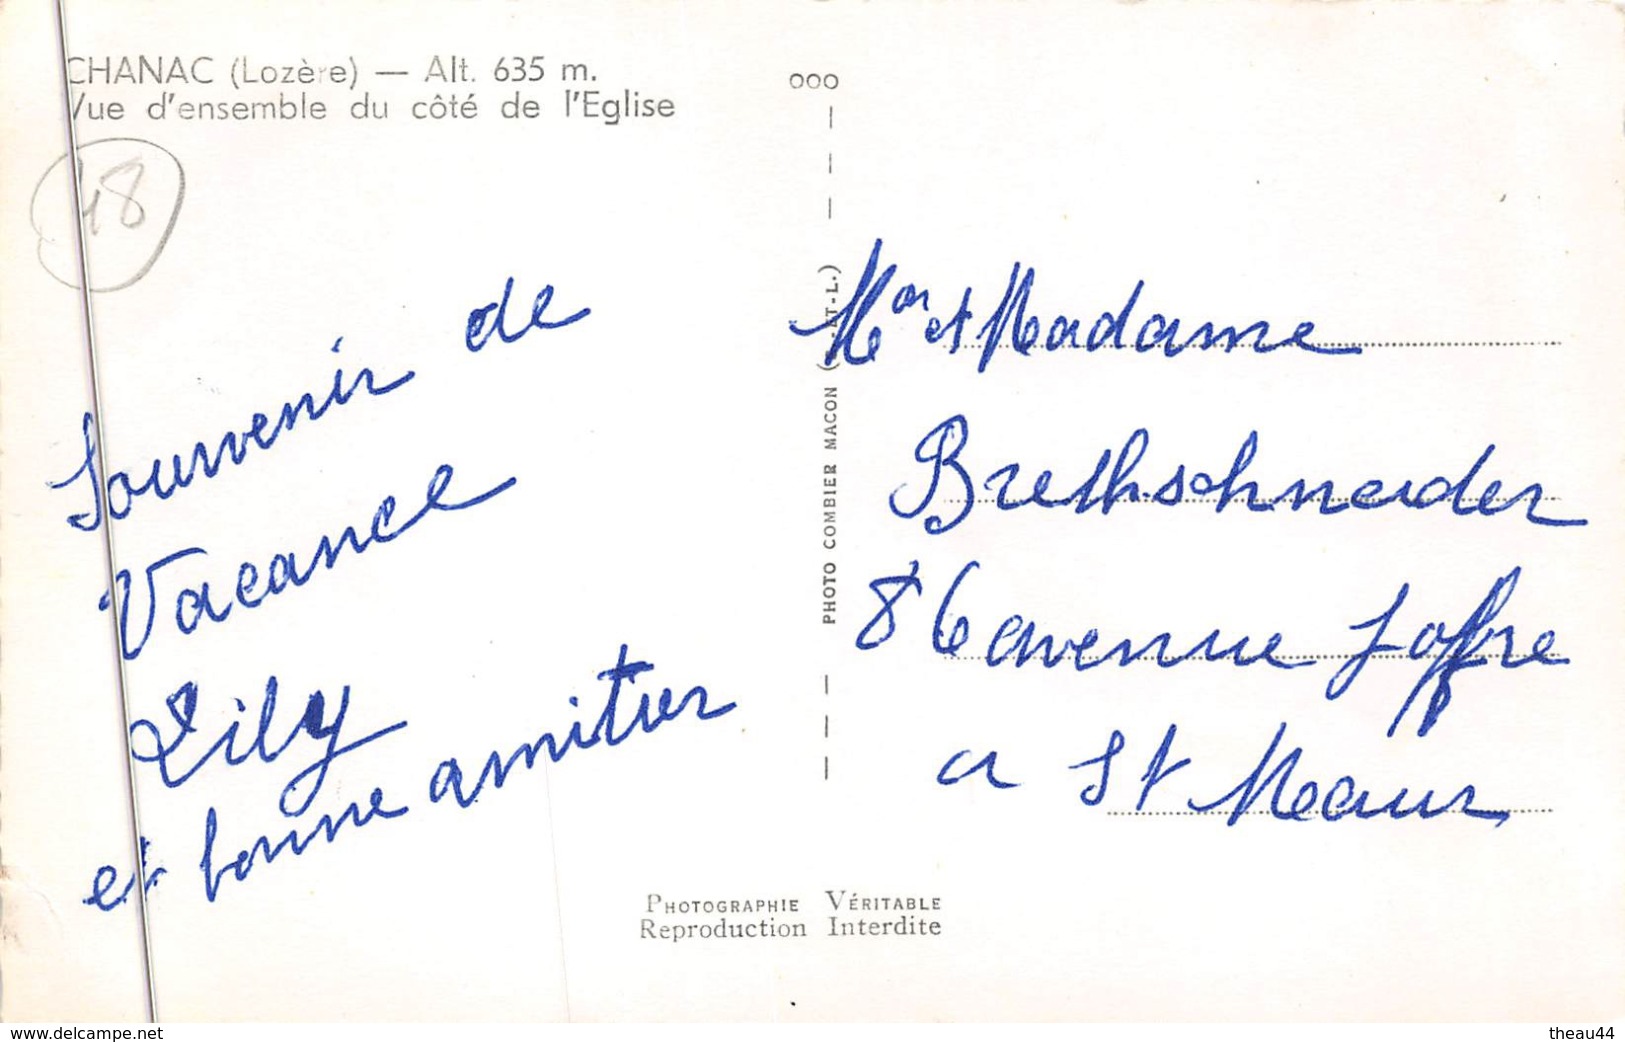 CHANAC (Lozère) — Alt. 635 m.
Vue d'ensemble du côté de l'Eglise
48
Souvenir de
Vacance
Lily
et bonne amitier
ooo
PHOTO COMBIER MACON (S.-ET-L.)
Mr et Madame
Brethschneider
86 avenue Joffre
a St Maur
PHOTOGRAPHIE VÉRITABLE
Reproduction Interdite
www.delcampe.net
theau44